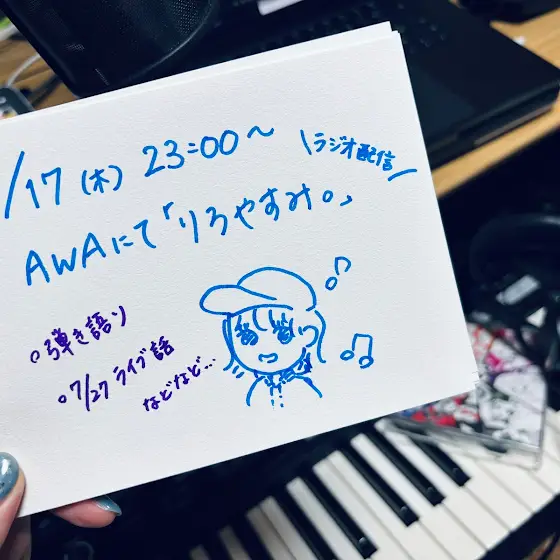 /17 (木) 23:00〜
\ラジオ配信/
AWAにて「りろやすみ。」
○弾き語り
○7/27 ライブ話
などなど...